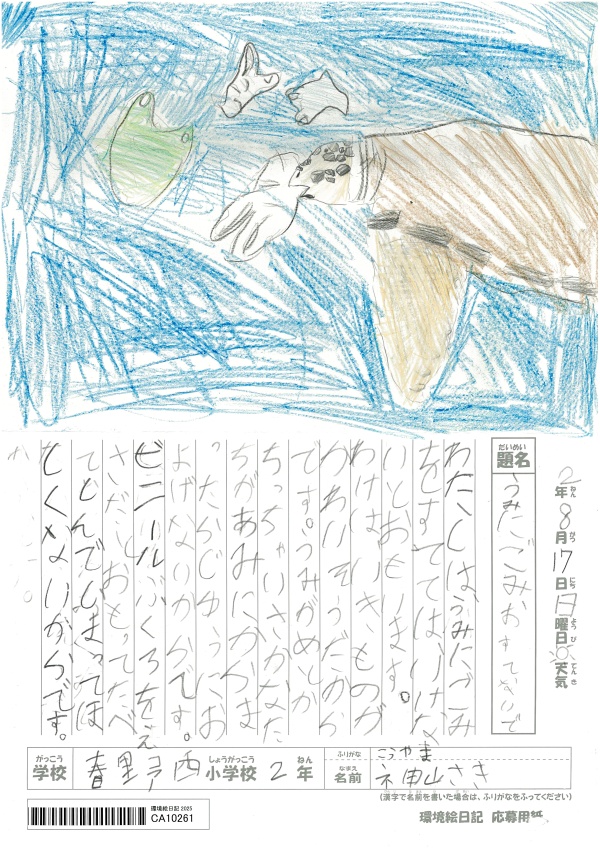 2年8月17日日曜日天気
ねん がつ にち ようび てんき
だいめい
題名
うみにごみおすてないで
わたしはうみにごみ
をすててはいけな
いとおもいます。
わけは、いきものが
かわいそうだから
です。うみがめとか
ちっちゃいさかなた
ちがあみにかかま
ったらじゆうにお
よげないからです。
ビニールぶくろをえ
さだとおもってたべ
てしんでしまってほ
しくないからです。
がっこう しょうがっこう ねん
学校 春里 西小学校 2年
ふりがな こうやま
なまえ
名前 神山さき
(漢字で名前を書いた場合は、ふりがなをふってください)
環境絵日記 2025
CA10261
環境絵日記 応募用紙